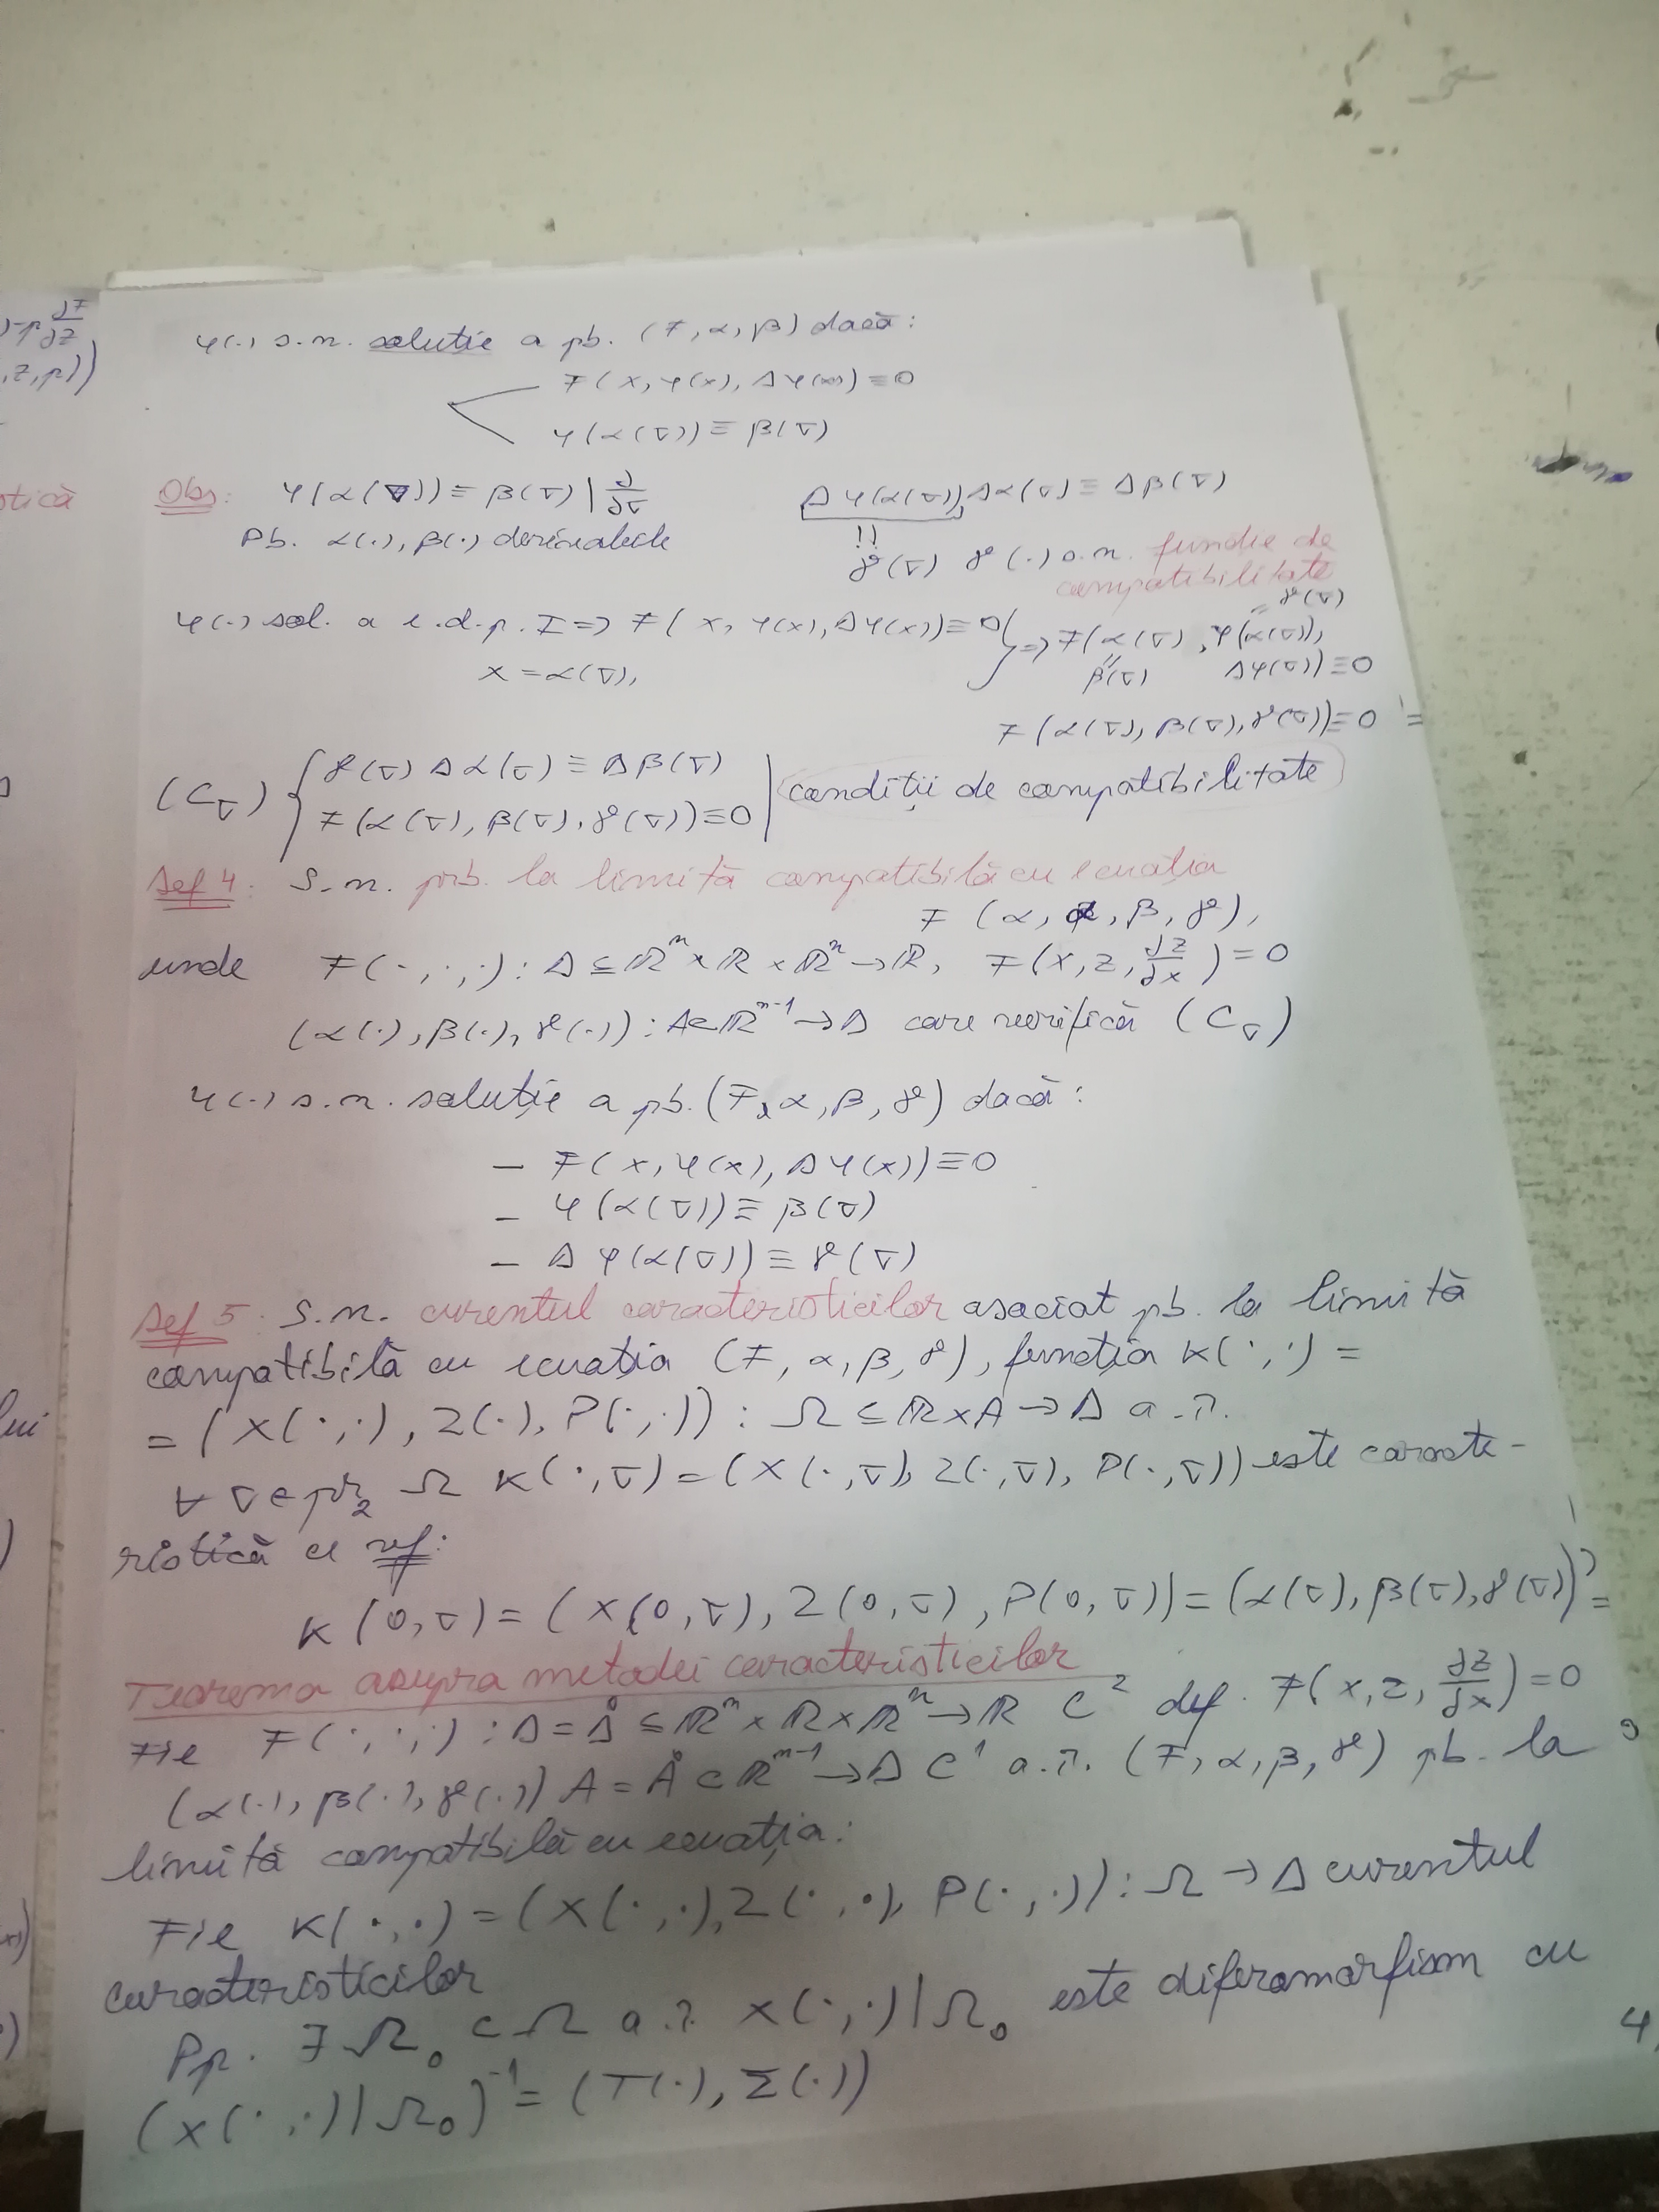 φ(.) s.n. soluție a pb. (F, α, β) dacă:
F(x, φ(x), Dφ(x)) ≡ 0
φ(α(σ)) ≡ β(σ)
Obs: φ(α(σ)) ≡ β(σ) | ∂/∂σ Dφ(α(σ)).Dα(σ) ≡ Dβ(σ)
Pb. α(.), β(.) derivabile !!
γ(σ) γ(.) s.n. funcție de
compatibilitate
φ(.) sol. a e.d.p. I => F(x, φ(x), Dφ(x)) ≡ 0 } => F(α(σ), φ(α(σ)), = γ(σ)
x = α(σ), β(σ) Dφ(σ)) ≡ 0
F(α(σ), β(σ), γ(σ)) ≡ 0
(Cσ) { γ(σ) Dα(σ) ≡ Dβ(σ) | condiții de compatibilitate
F(α(σ), β(σ), γ(σ)) ≡ 0
Def 4: S.n. prb. la limită compatibilă cu ecuația
F (α, β, γ),
unde F(·,·,·) : D ⊆ ℝⁿ × ℝ × ℝⁿ → ℝ, F(x, z, ∂z/∂x) = 0
(α(.), β(.), γ(.)) : A ⊂ ℝⁿ⁻¹ → D care verifică (Cσ)
φ(.) s.n. soluție a pb. (F, α, β, γ) dacă:
– F(x, φ(x), Dφ(x)) ≡ 0
– φ(α(σ)) ≡ β(σ)
– Dφ(α(σ)) ≡ γ(σ)
Def 5: S.n. curentul caracteristicilor asociat pb. la limită
compatibilă cu ecuația (F, α, β, γ), funcția K(·,·) =
= (X(·,·), Z(·), P(·,·)) : Ω ⊆ ℝ×A → D a.î.
∀ σ ∈ pr₂ Ω K(·,σ) = (X(·,σ), Z(·,σ), P(·,σ)) este caracte-
ristică a
K(0,σ) = (X(0,σ), Z(0,σ), P(0,σ)) = (α(σ), β(σ), γ(σ))
Teorema asupra metodei caracteristicilor
Fie F(·,·,·) : D = D̊ ⊆ ℝⁿ × ℝ × ℝⁿ → ℝ C² def. F(x, z, ∂z/∂x) = 0
(α(.), β(.), γ(.)) A = Å ⊂ ℝⁿ⁻¹ → D C¹ a.î. (F, α, β, γ) pb. la
limită compatibilă cu ecuația:
Fie K(·,·) = (X(·,·), Z(·,·), P(·,·)) : Ω → D curentul
caracteristicilor
Pp. ∃ Ω₀ ⊂ Ω a.î. X(·,·)|Ω₀ este difeomorfism cu
(X(·,·)|Ω₀)⁻¹ = (T(·), Σ(·))